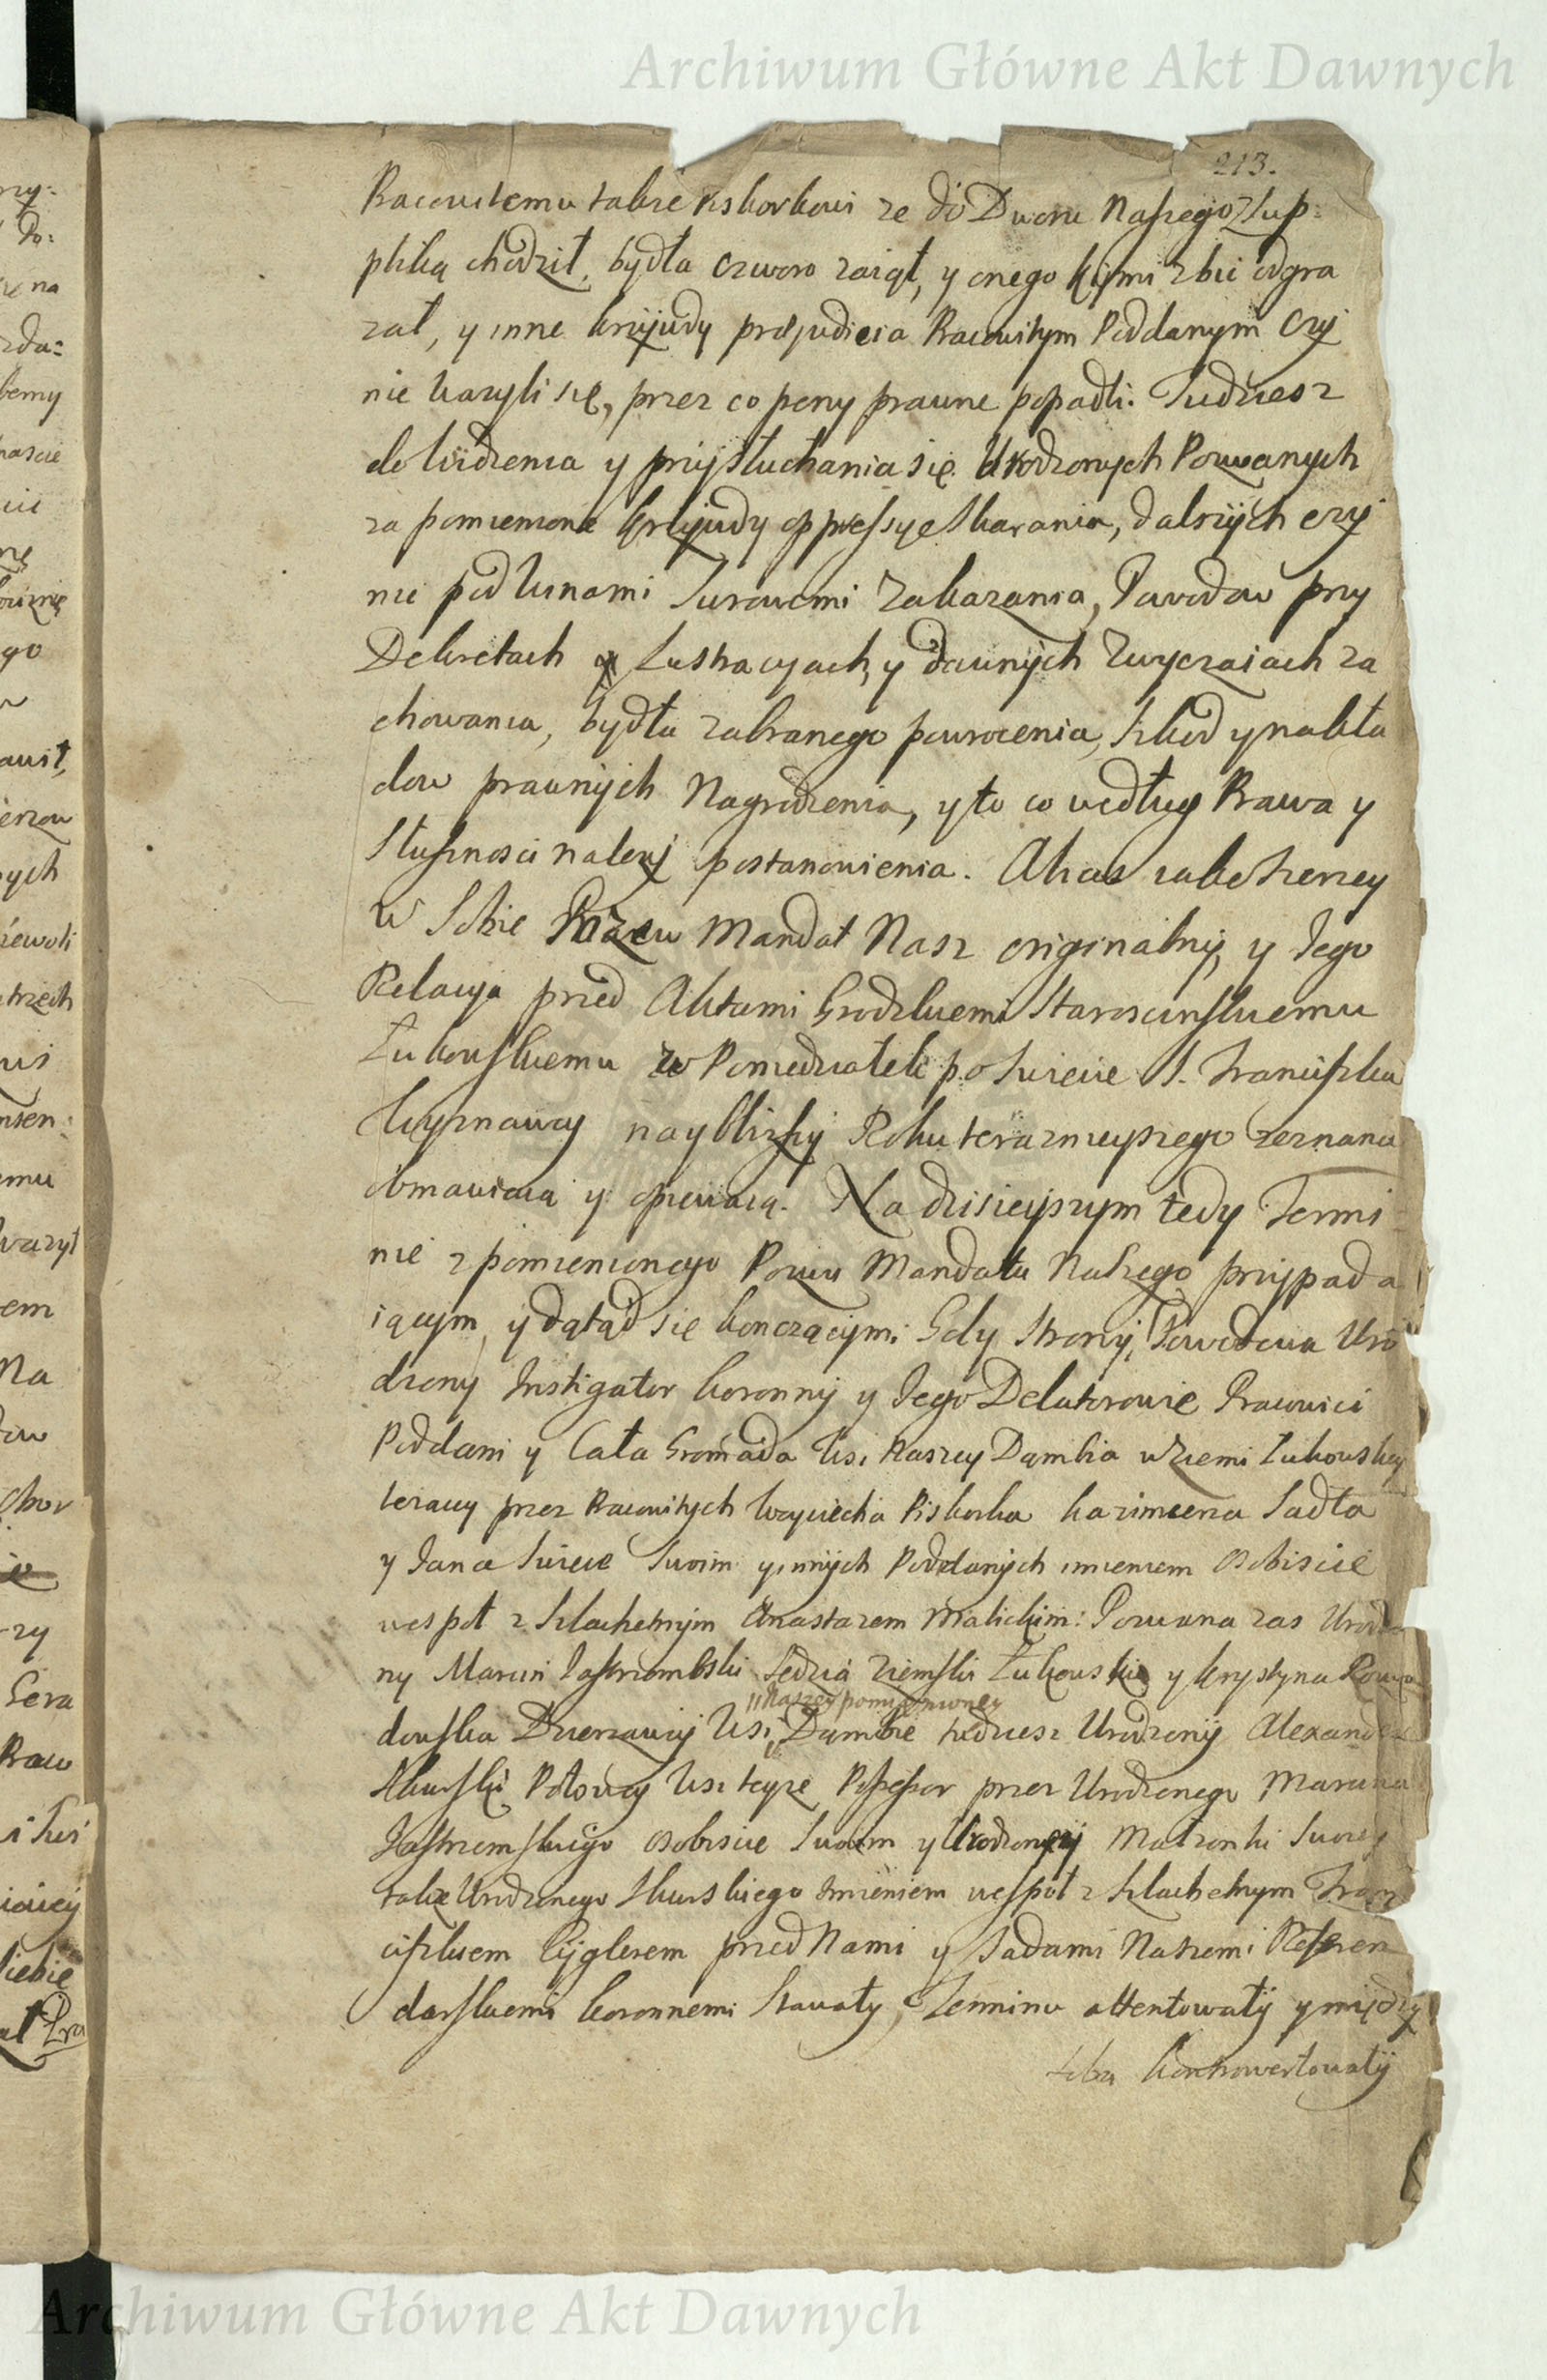 Archiwum Główne Akt Dawnych
213.
Pracowitemu także Piskorkowi ze do Dworu Naszego z Sup-
pliką chodził, bydła czworo zaiął, y onego kijmi zbić odgra
zał, y inne krzywdy praejudicia Pracowitym Poddanym czy
nic ważyli się, przez co peny prawne popadli. Tudziesz
do widzenia y przysłuchania się Urodzonych Pozwanych
za pomienione krzywdy oppressye skarania, dalszych czy
nic pod winami surowemi zakazania, Powodow przy
Dekretach Lustracyach, y dawnych zwyczaiach za
chowania, bydła zabranego powrocenia, szkod y nakła
dow prawnych Nagrodzenia, y to co według Prawa y
słusznosci należy postanowienia. Akas rabe szerzey
w sobie Pozew Mandat Nasz originalny, y Jego
Relacya przed Aktami Grodzkiemi Staroscinskiemu
Łukowskiemu w Poniedziałek po Swięcie S. Franciszka
Wyznawcy naybliższy Roku teraznieyszego zeznana
obmawiaią y opiewaią. Na dzisieyszym tedy Termi
nie z pomienionego Pozwu Mandatu Naszego przypada
iącym, y dątąd się konczącymi Gdy Strony, Powodowa Uro
dzony Instigator Koronny y Jego Delatorowie Pracowici
Poddani y Cała Gromada Wsi Naszey Dąmbia w Ziemi Łukowskiey
leżącey przez Pracowitych Woyciecha Piskorka Kazimierza Sadła
y Jana Swiecie swoim y innych Poddanych imieniem osobiscie
wespoł z Szlachetnym Anastazem Malickim: Pozwana zas Urodzo
ny Marcin Jastrzembski Sędzia Ziemski Łukowski y Krystyna Rowa
"Naszey pomienioney
dowska Dzierzawcy Wsi " Dąmbie tudziesz Urodzony Alexander
Skurski Połowy Wsi teyze Possessor przez Urodzonego Marcina
Jastrzemskiego osobiscie swoim y Urodzoney Małzonki Swoiey
także Urodzonego Skurskiego Imieniem wespoł z Szlachetnym Fran
ciszkiem Cyglerem przed Nami y Sądami Naszemi Referen
darskiemi Koronnemi Stawały, Terminu attentowały y między
sobą kontrowertowały
Archiwum Główne Akt Dawnych